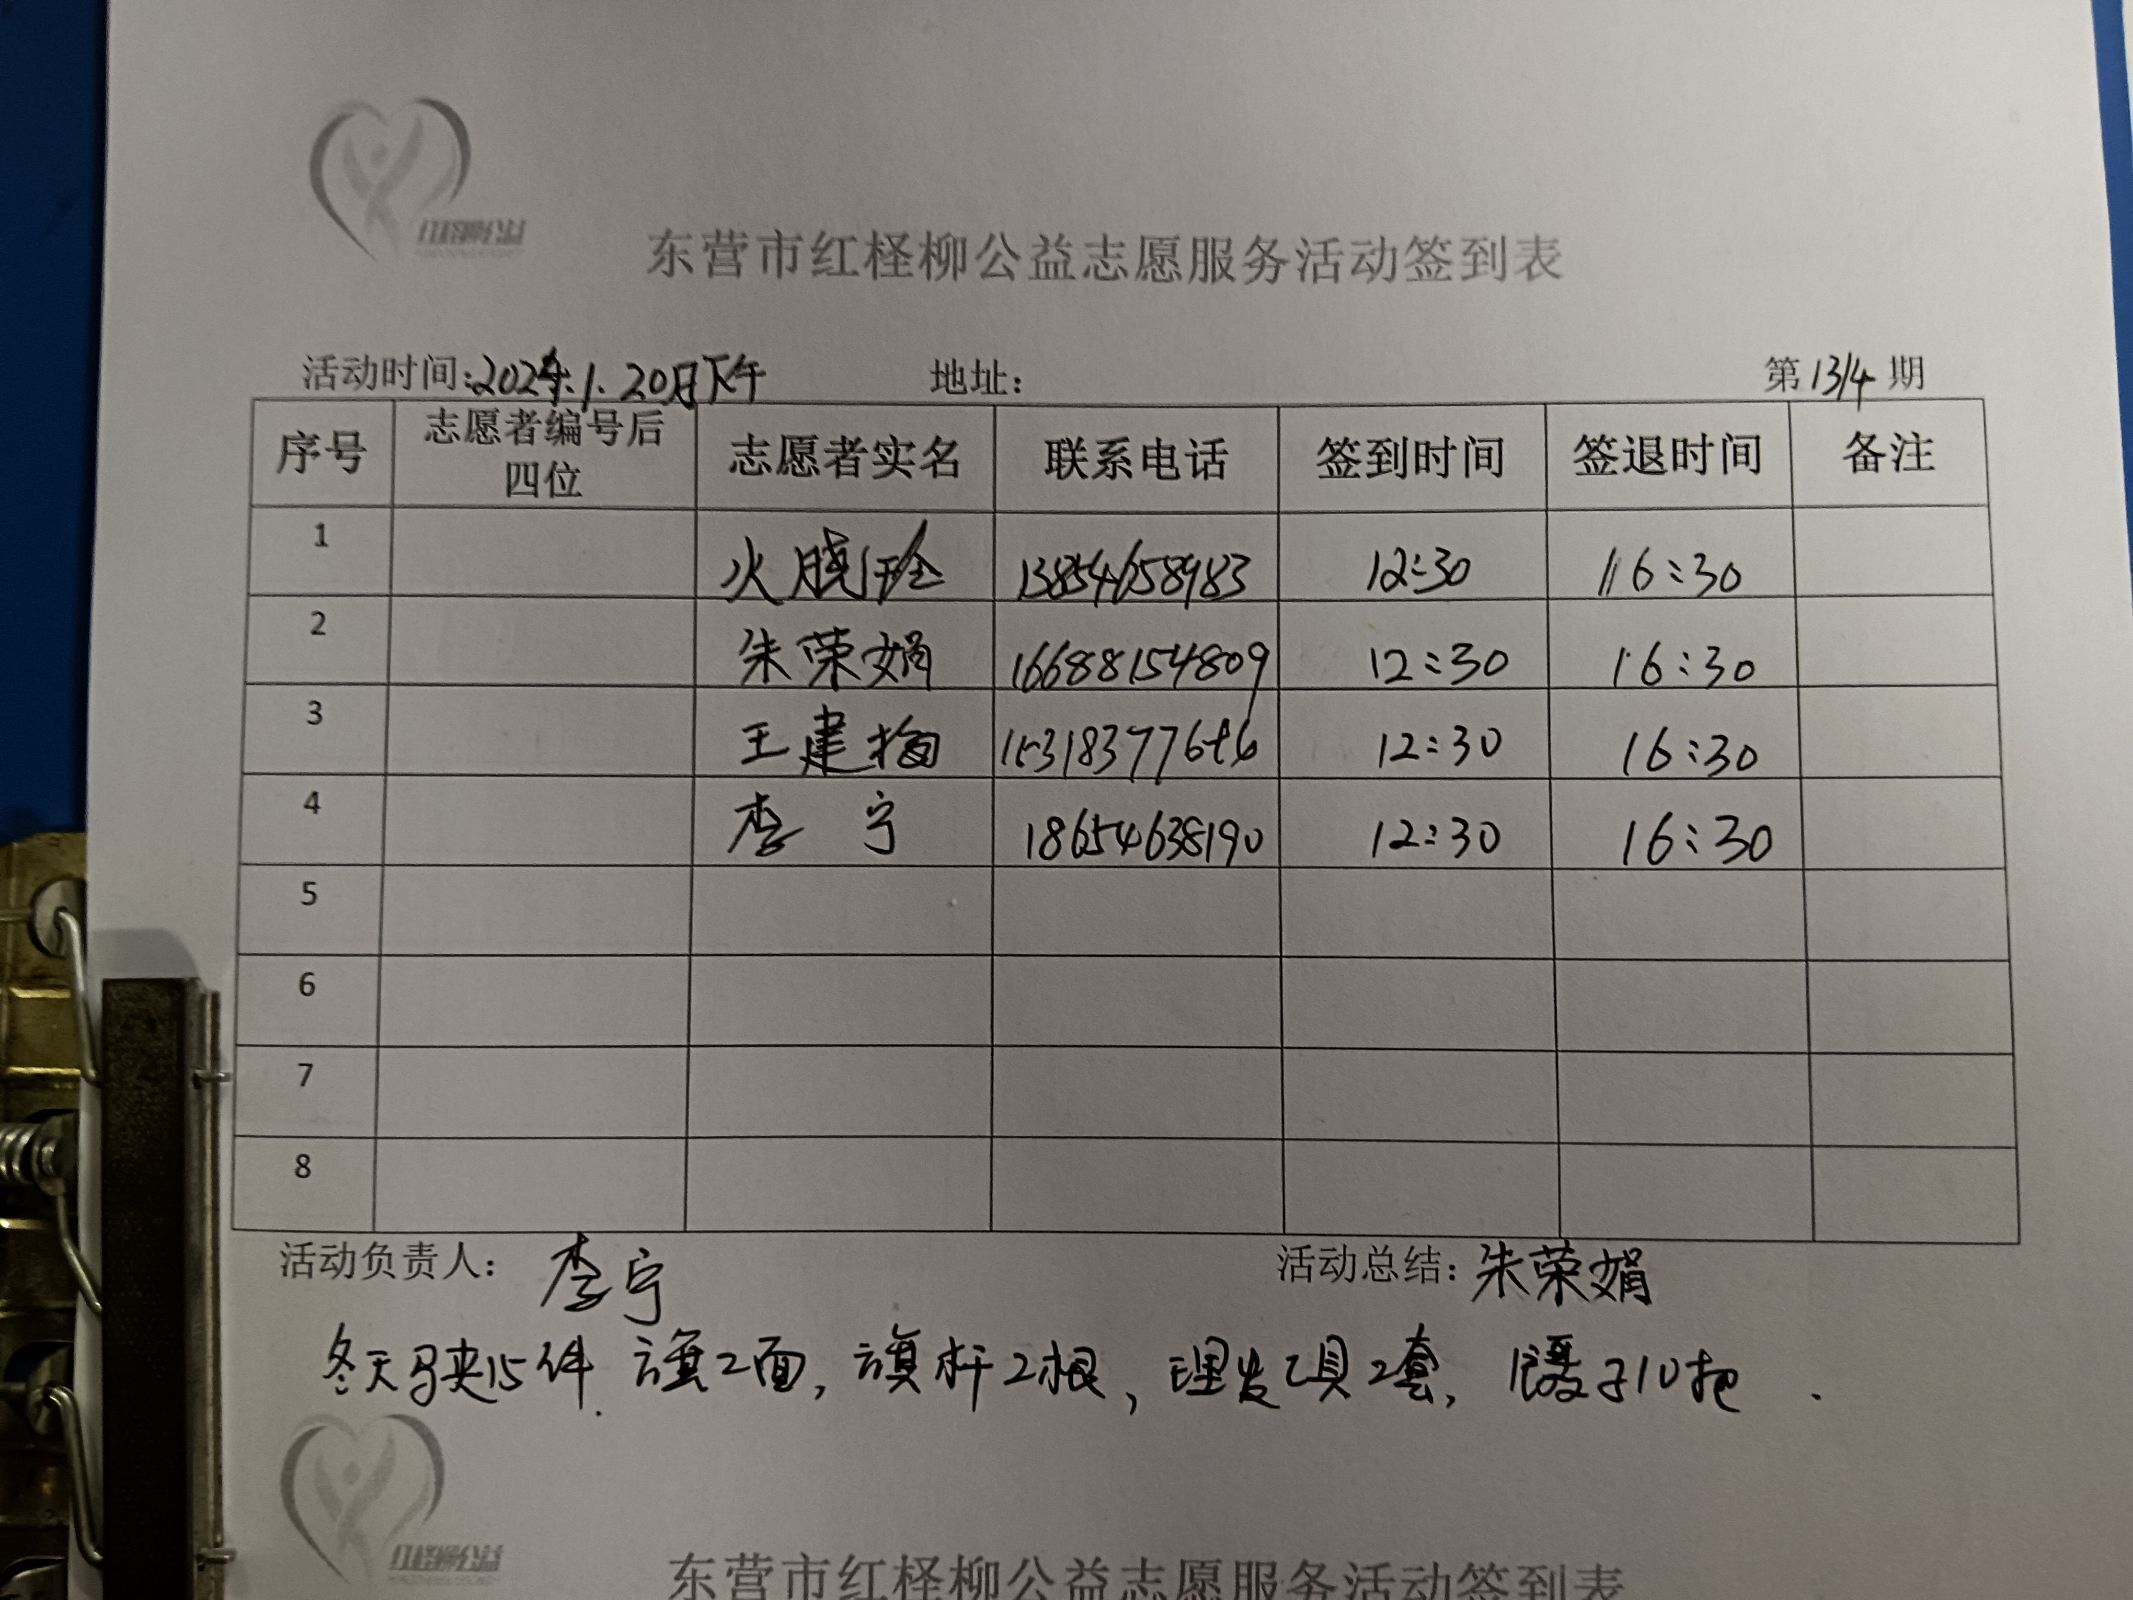 红柽柳公益
东营市红柽柳公益志愿服务活动签到表
活动时间:2024.1.20日下午 地址: 第1314期
序号 志愿者编号后四位 志愿者实名 联系电话 签到时间 签退时间 备注
1 火晓玲 13854658983 12:30 16:30
2 朱荣娟 16688154809 12:30 16:30
3 王建梅 12:30 16:30
4 李宁 18654638190 12:30 16:30
5
6
7
8
活动负责人: 李宁 活动总结: 朱荣娟
冬天马夹15件 旗2面, 旗杆2根, 理发工具2套, 镊子10把.
红柽柳公益
东营市红柽柳公益志愿服务活动签到表